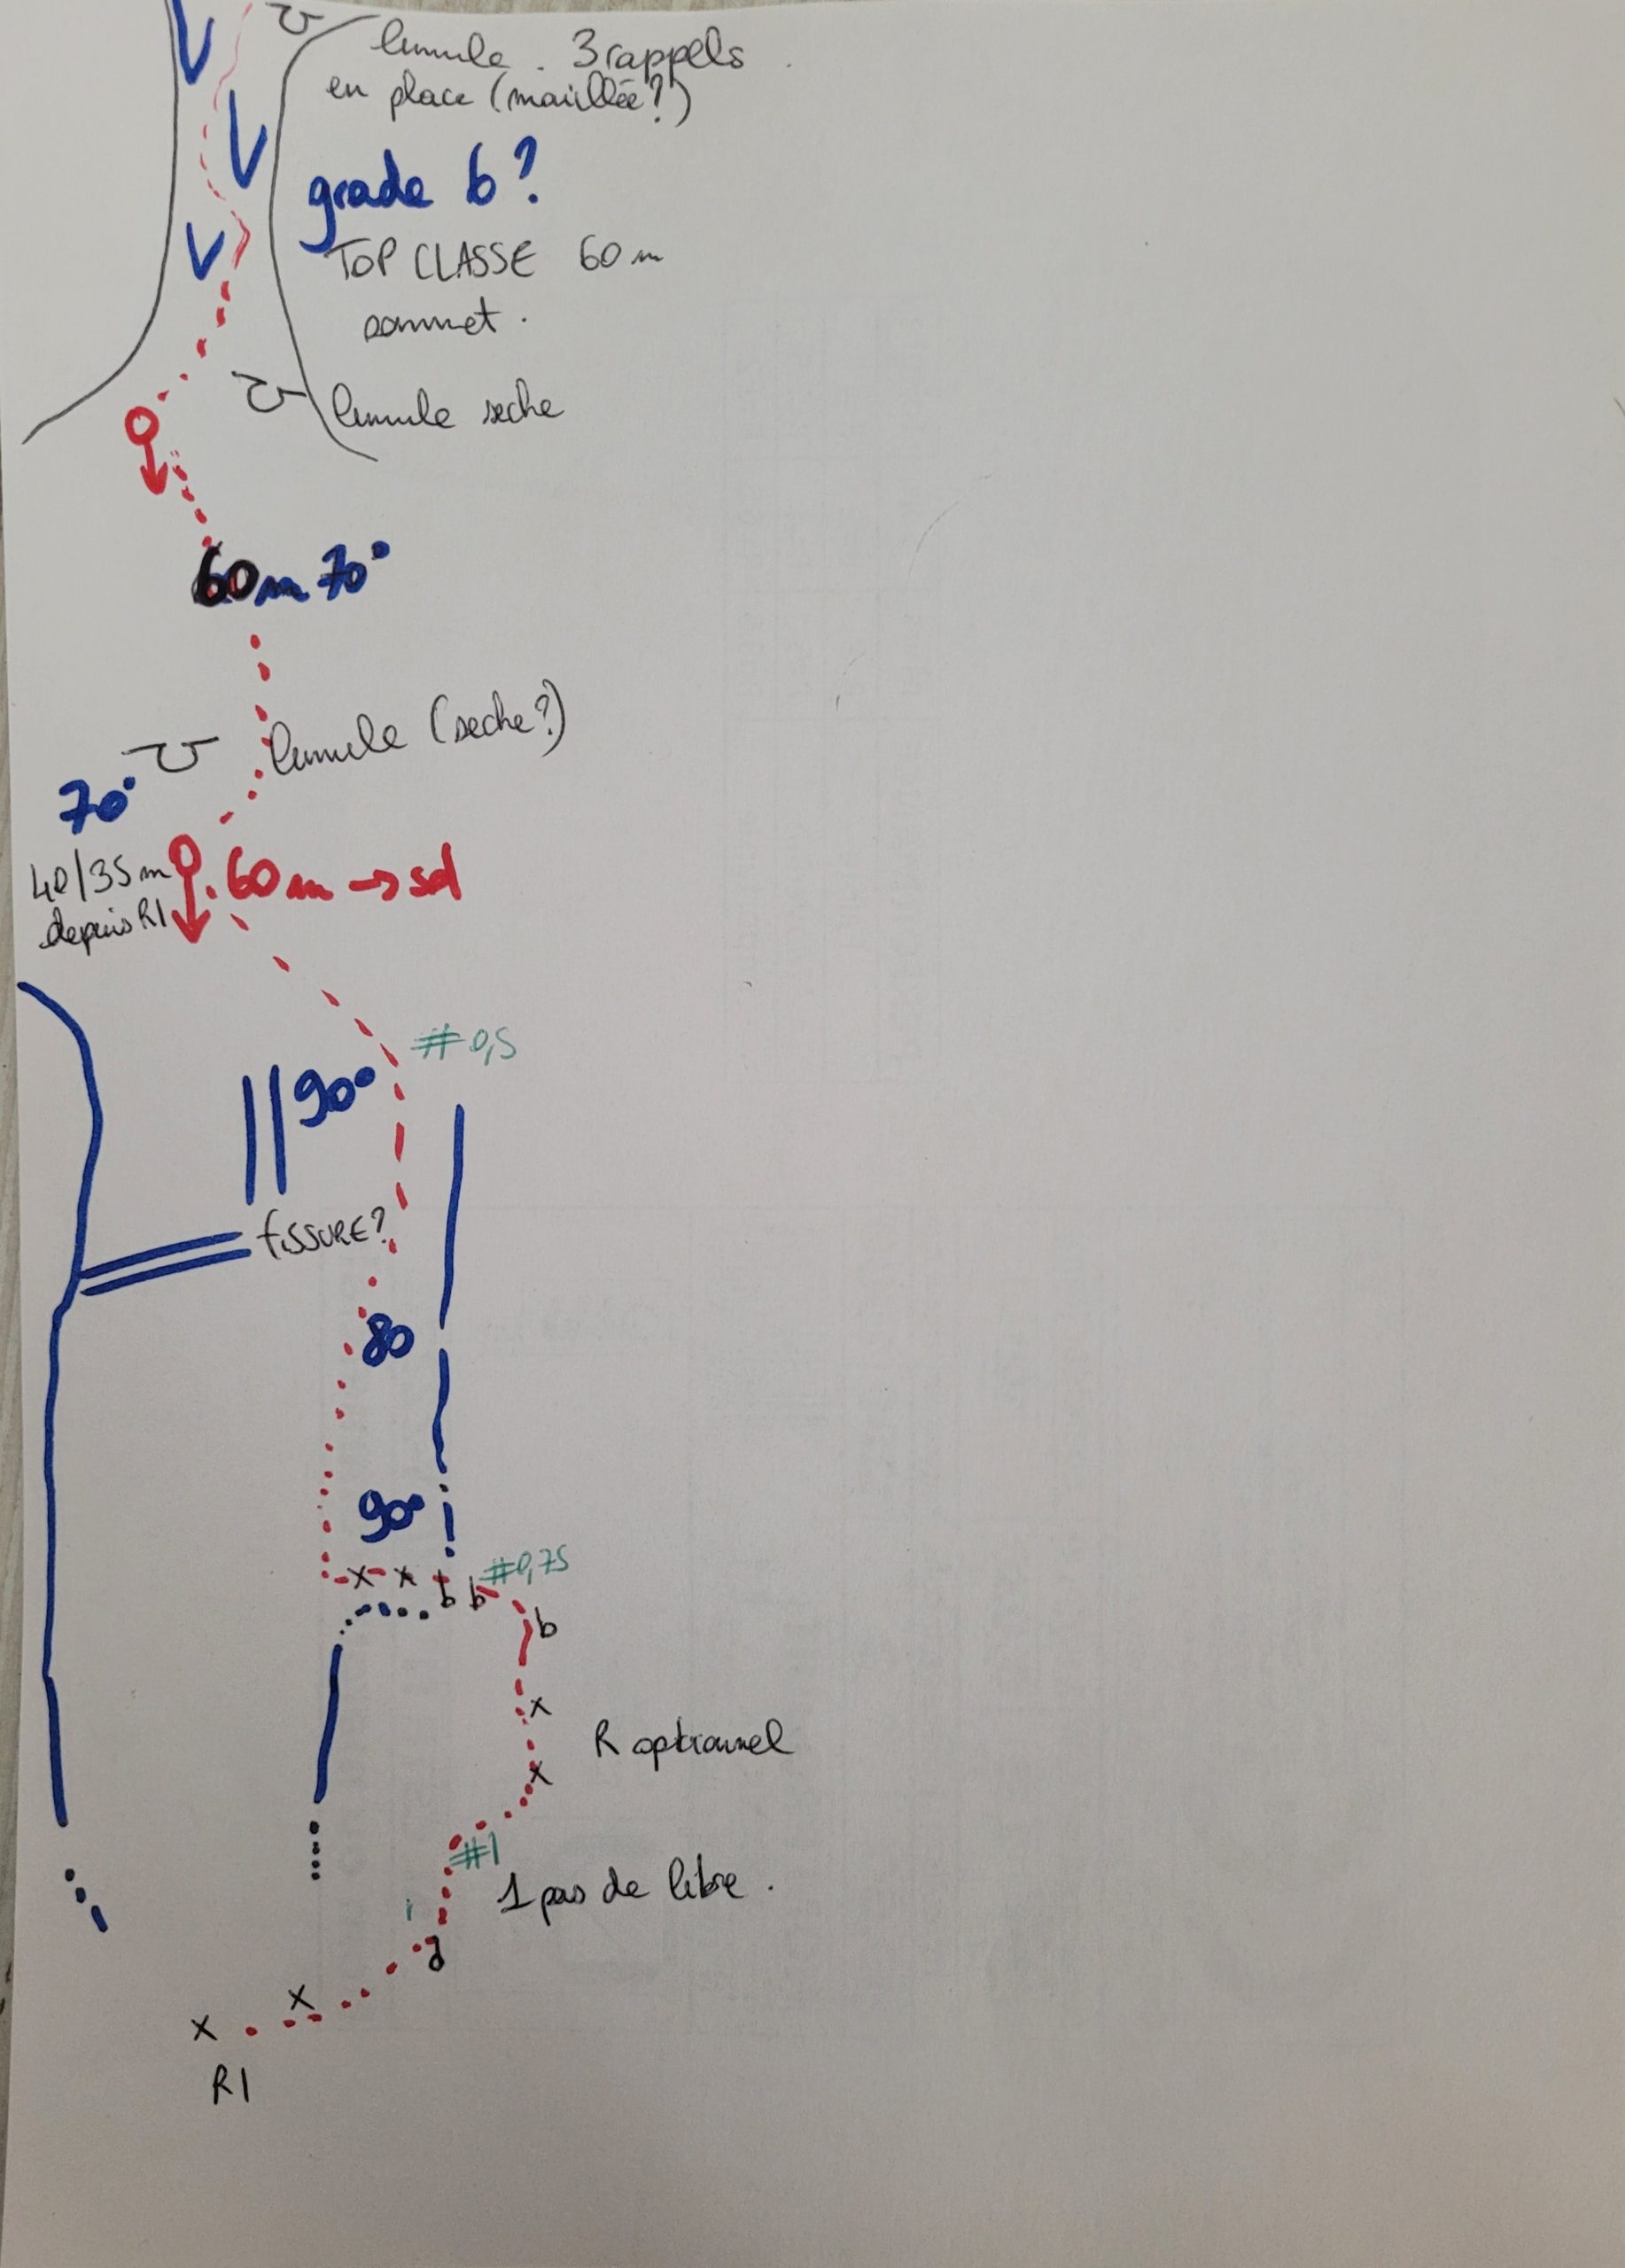 lunule . 3 rappels
en place (maillée?)
grade 6?
TOP CLASSE 60m
sommet.
lunule seche
60m 70°
lunule (seche?)
70°
40/35m
depuis R1
60m → sol
#0,5
90°
fissure?
80
90°
x x b b #0,75
b
x
R optionnel
x
#1
1 pas de libre.
x x
R1